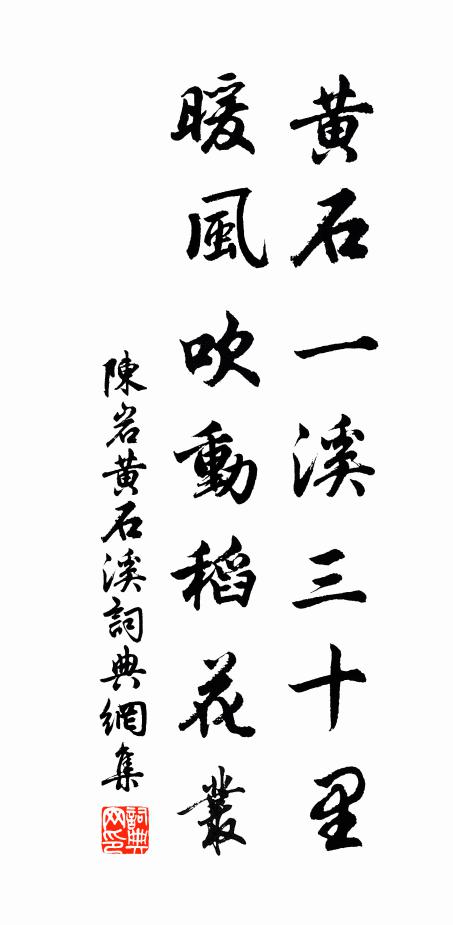 黃石一溪三十里
暖風吹動稻花叢
陳岩黃石溪詞典網集
詞典网印